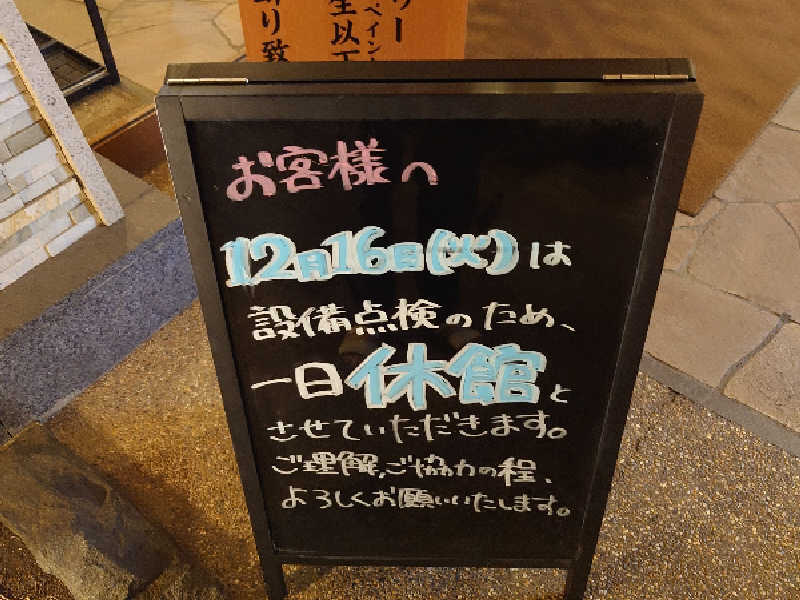 お客様へ
12月16日(火)は
設備点検のため、
一日休館と
させていただきます。
ご理解,ご協力の程、
よろしくお願いいたします。